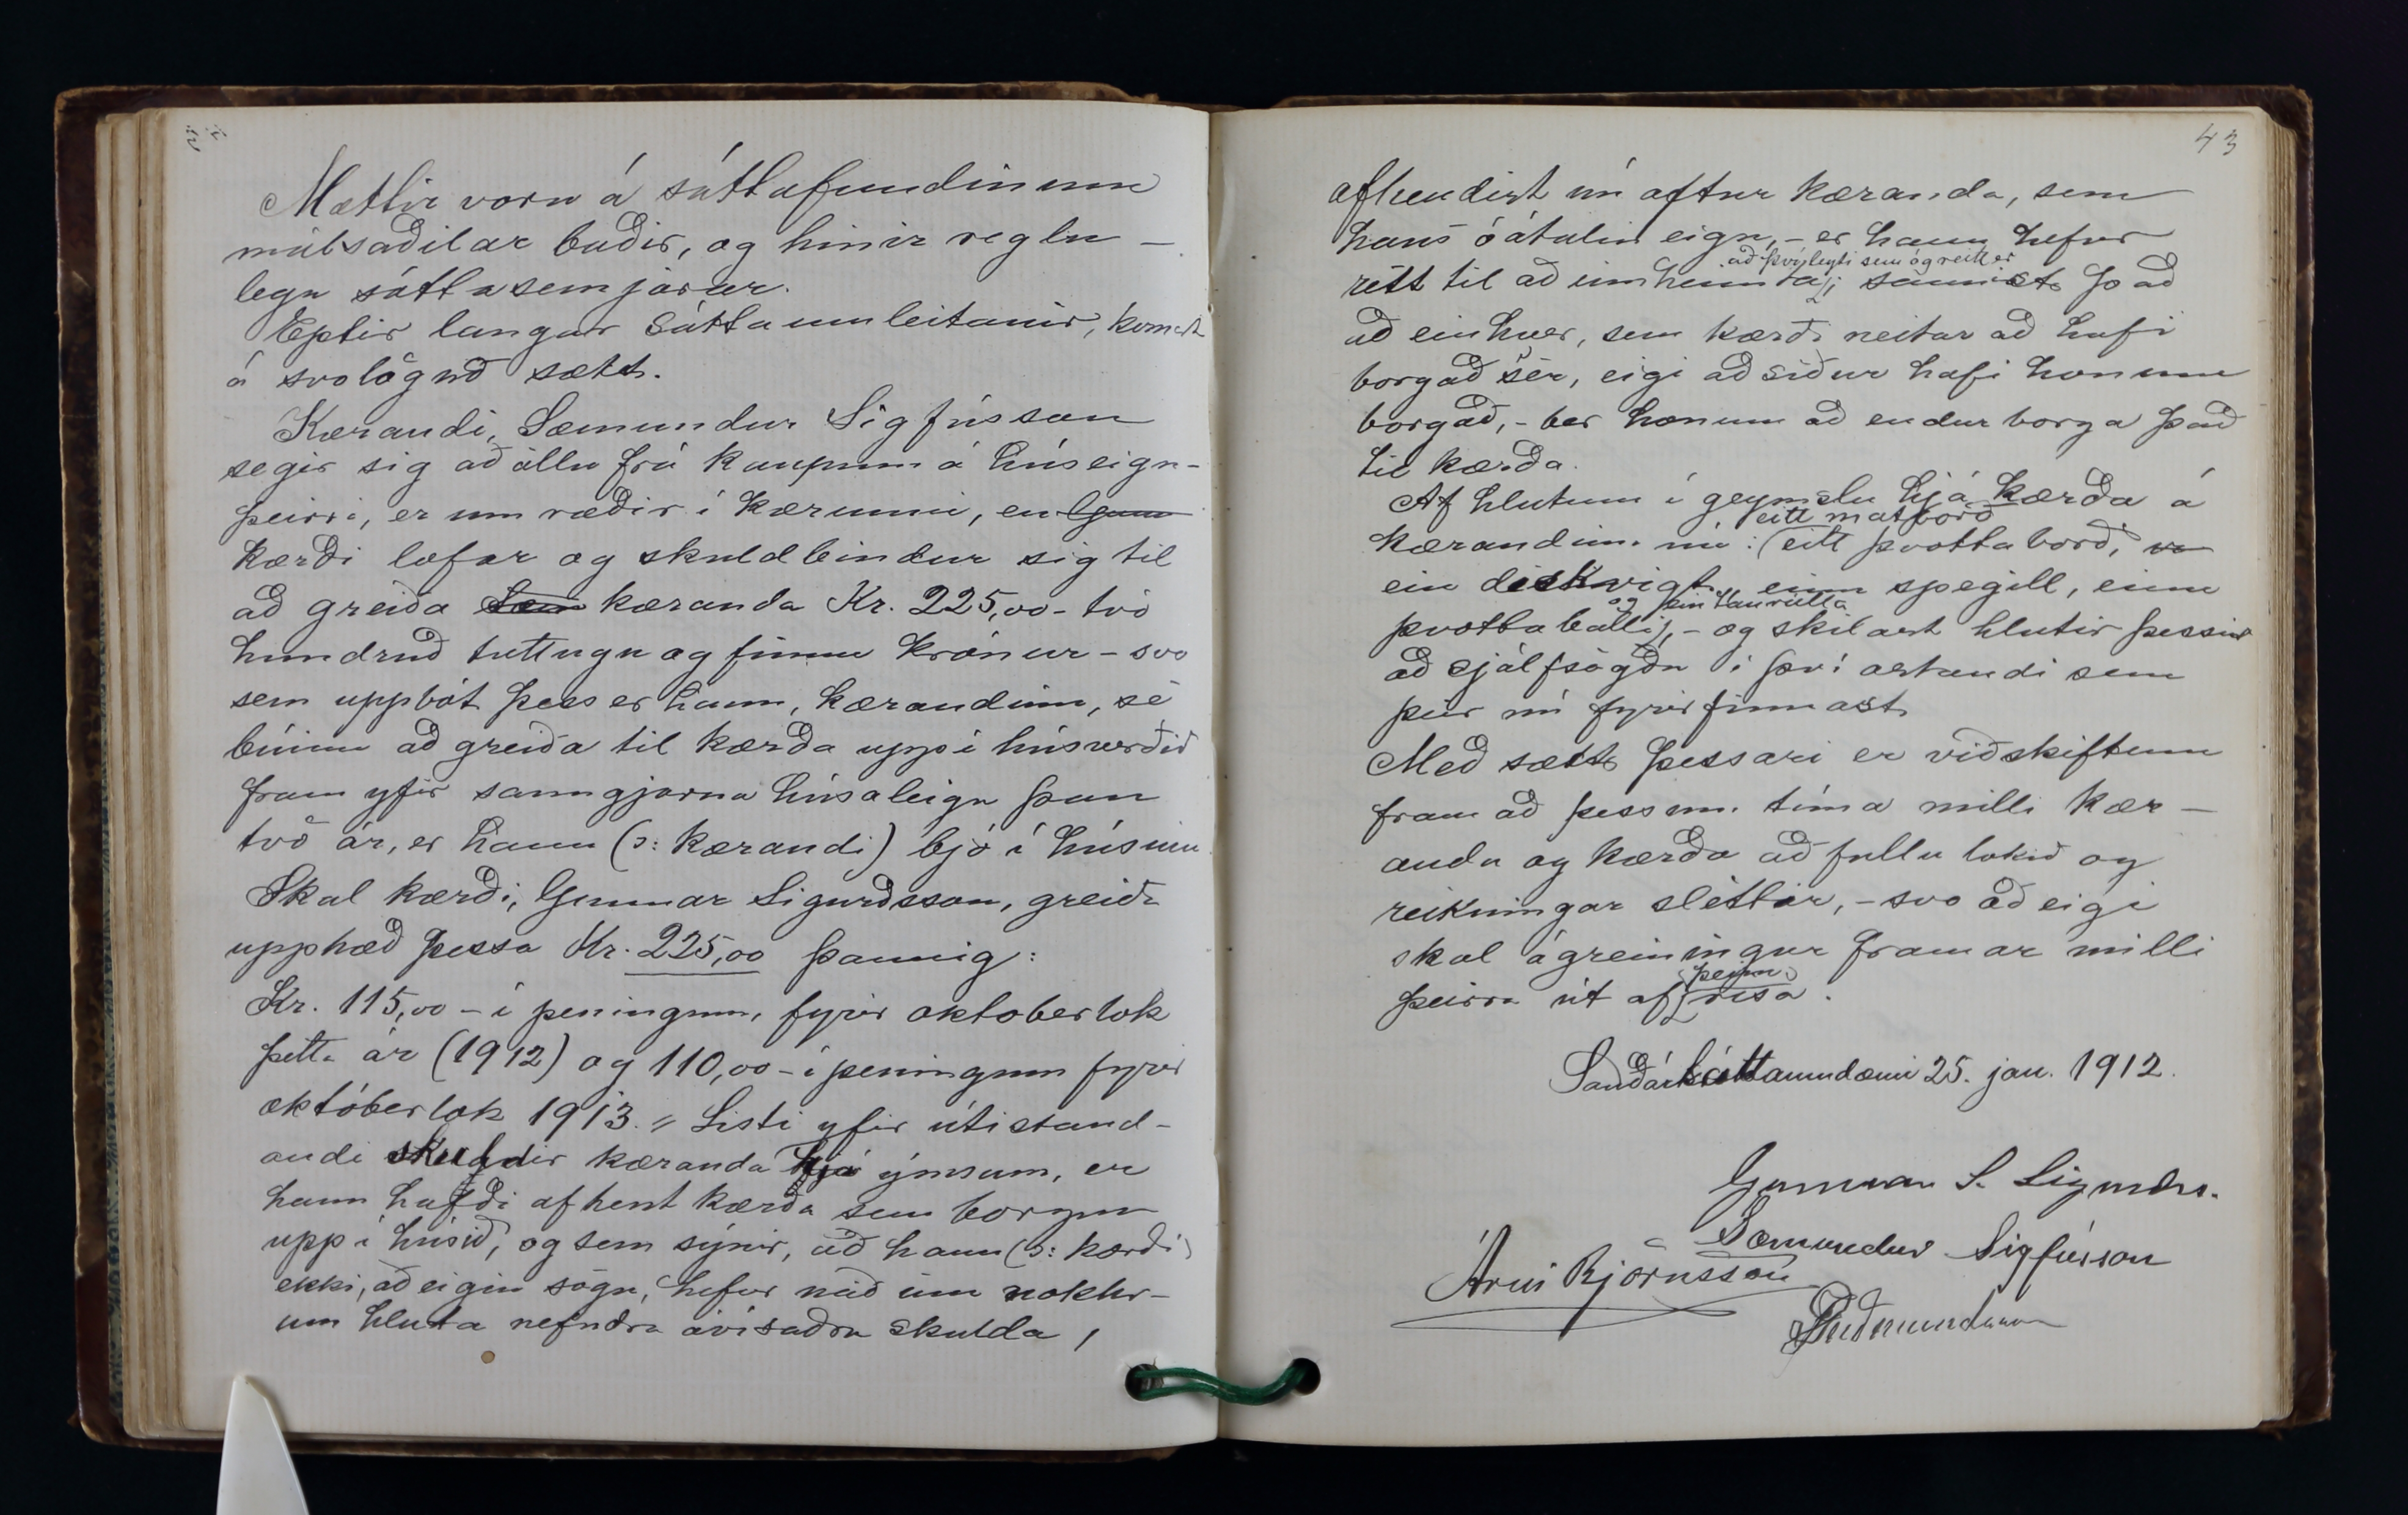 Mættir voru á sáttafundinum
málsaðilar báðir, og hinir reglu-
legu sáttasemjarar.
Eptir langar sáttaumleitanir, komst
á svolögud sætt.
Kærandi, Sæmundur Sigfússon
segir sig að öllu frá kaupum á húseign-
þeirri, er um ræðir í kærunni, en Gunn
kærði lofar og skuldbindur sig til
að greiða Sæm kæranda Kr. 225,00 - tvö
hundruð tuttugu og fimm krónur - svo
sem uppbót þess er hann, kærandinn, sé
búinn að greiða til kærða upp í húsverðið
fram yfir sanngjarna húsaleigu þau
tvö ár, er hann (ɔ: kærandi) bjó í húsinu
Skal kærði, Gunnar Sigurðsson, greiða
upphæð þessa Kr. 225,00 þannig:
Kr. 115,00 - í peningum, fyrir oktoberlok
þetta ár (1912) og 110,00 - í peningum fyrir
októberlok 1913. " Listi yfir útistand-
andi skuldir kæranda hjá ýmsum, er
hann hafði afhent kærða sem borgun
upp í húsið, og sem sýnir, að hann (ɔ: kærði)
ekki, að eigin sögn, hefur náð inn nokkr-
um hluta nefndra ávísaðra skulda,
43
afhendist nú aftur kæranda, sem
hans óátalin eign, - er hann hefur
að því leyti sem ógreitt er
rétt til að innheimta; sannist það
að einhver, sem kærði neitar að hafi
borgað sér, eigi að síður hafi honum
borgað, - ber honum að endurborga það
til kærða.
Af hlutum í geymslu hjá kærða á
eitt matborð
kærandinn nú: eitt þvottaborð,
ein diskvigt, einn spegill, einn
og ein taurulla
þvottaballi, - og skilast hlutir þessir
að sjálfsögðu í því astandi sem
þeir nú fyrirfinnast.
Með sætt þessari er viðskiftum
fram að þessum tíma milli kær-
anda og kærða að fullu lokið og
reikningar sléttir, - svo að eigi
skal ágreiningur framar milli
þeim
þeirra út af rísa.
Sauðárkr sáttaumdæmi 25. jan. 1912.
Gunnar S. Sigurdss.
Sæmundur Sigfússon
Árni Björnsson
Guðmundsson